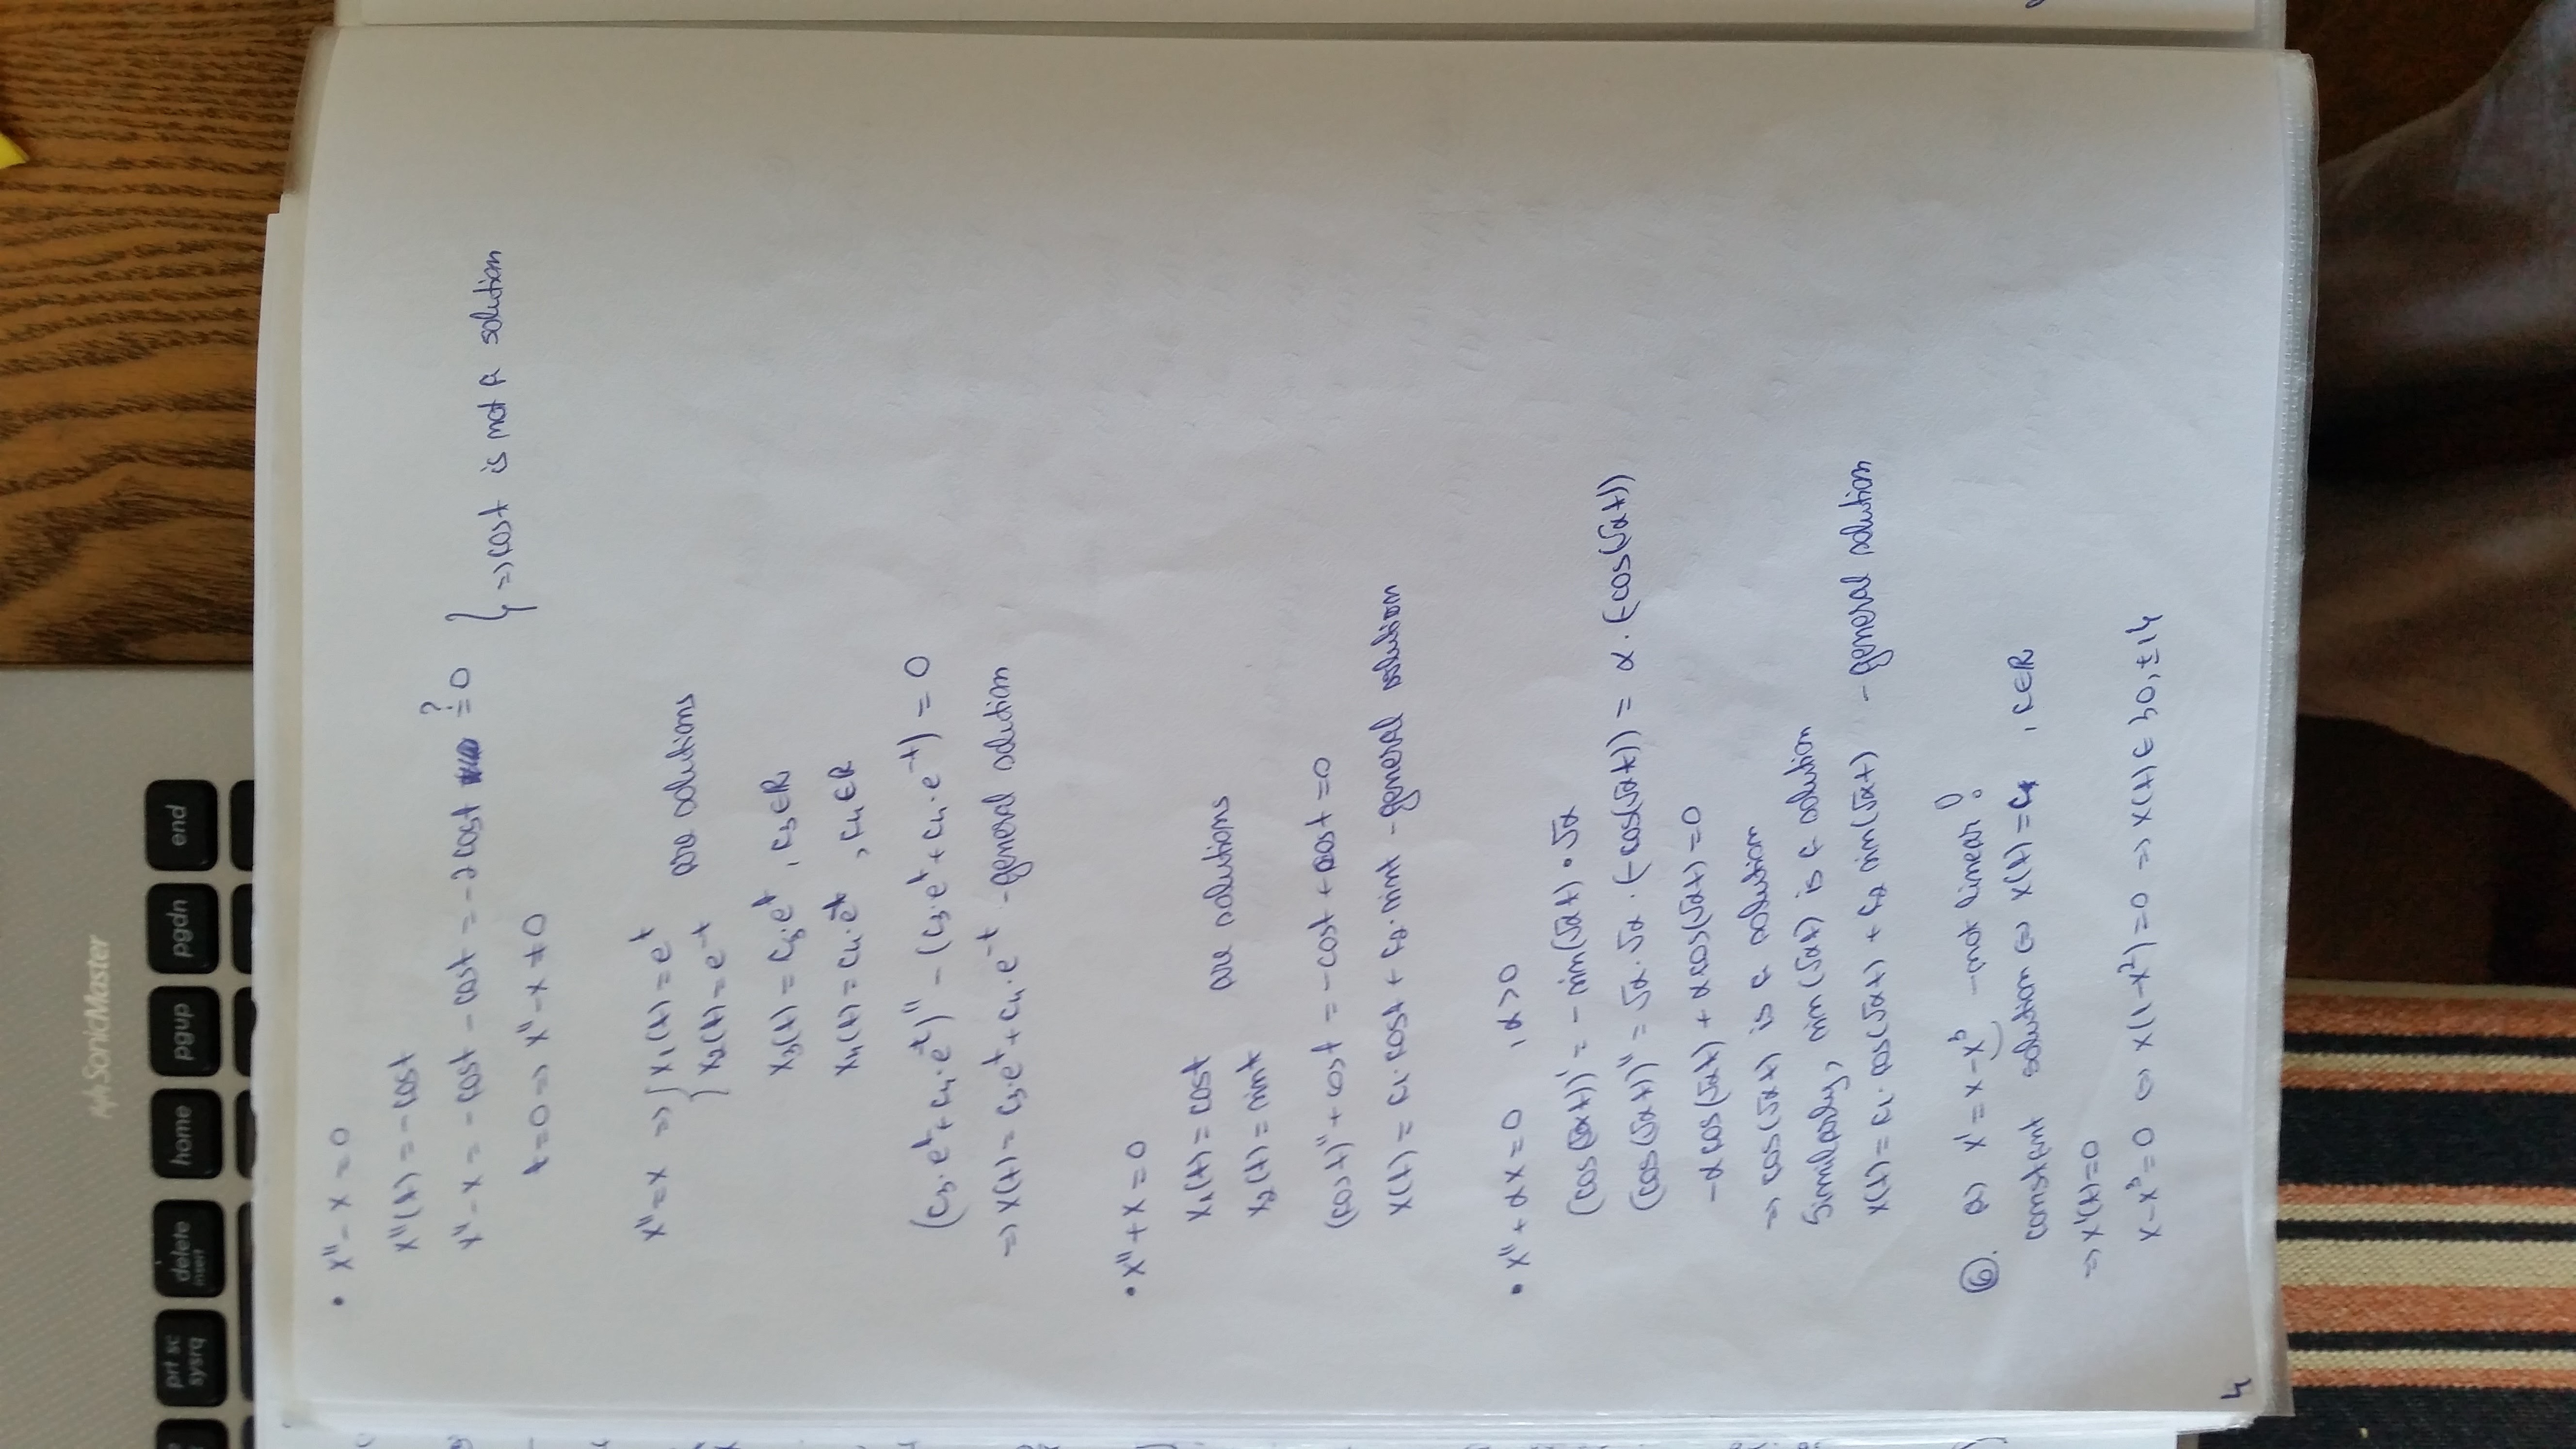 SonicMaster
prt sc
sysrq
delete
insert
home
pgup
pgdn
end
• x'' - x = 0
x''(t) = -cost
x'' - x = -cost - cost = -2cost ?= 0
t=0 => x'' - x ≠ 0
} => cost is not a solution
x'' = x => { x₁(t) = e^t
x₂(t) = e^-t
are solutions
x₃(t) = c₃·e^t , c₃∈R
x₄(t) = c₄·e^-t , c₄∈R
(c₃·e^t + c₄·e^-t)'' - (c₃·e^t + c₄·e^-t) = 0
=> x(t) = c₃·e^t + c₄·e^-t - general solution
• x'' + x = 0
x₁(t) = cost
x₂(t) = sint
are solutions
(cost)'' + cost = -cost + cost = 0
x(t) = c₁·cost + c₂·sint - general solution
• x'' + αx = 0 , α>0
(cos(√αt))' = -sin(√αt)·√α
(cos(√αt))'' = √α·√α·(-cos(√αt)) = α·(-cos(√αt))
-αcos(√αt) + αcos(√αt) = 0
=> cos(√αt) is a solution
Similarly, sin(√αt) is a solution
x(t) = c₁·cos(√αt) + c₂ sin(√αt) - general solution
⑥. a) x' = x - x³ - not linear!
constant solution <=> x(t) = c , c∈R
=> x'(t) = 0
x - x³ = 0 <=> x(1-x²) = 0 => x(t) ∈ {0, ±1}
4